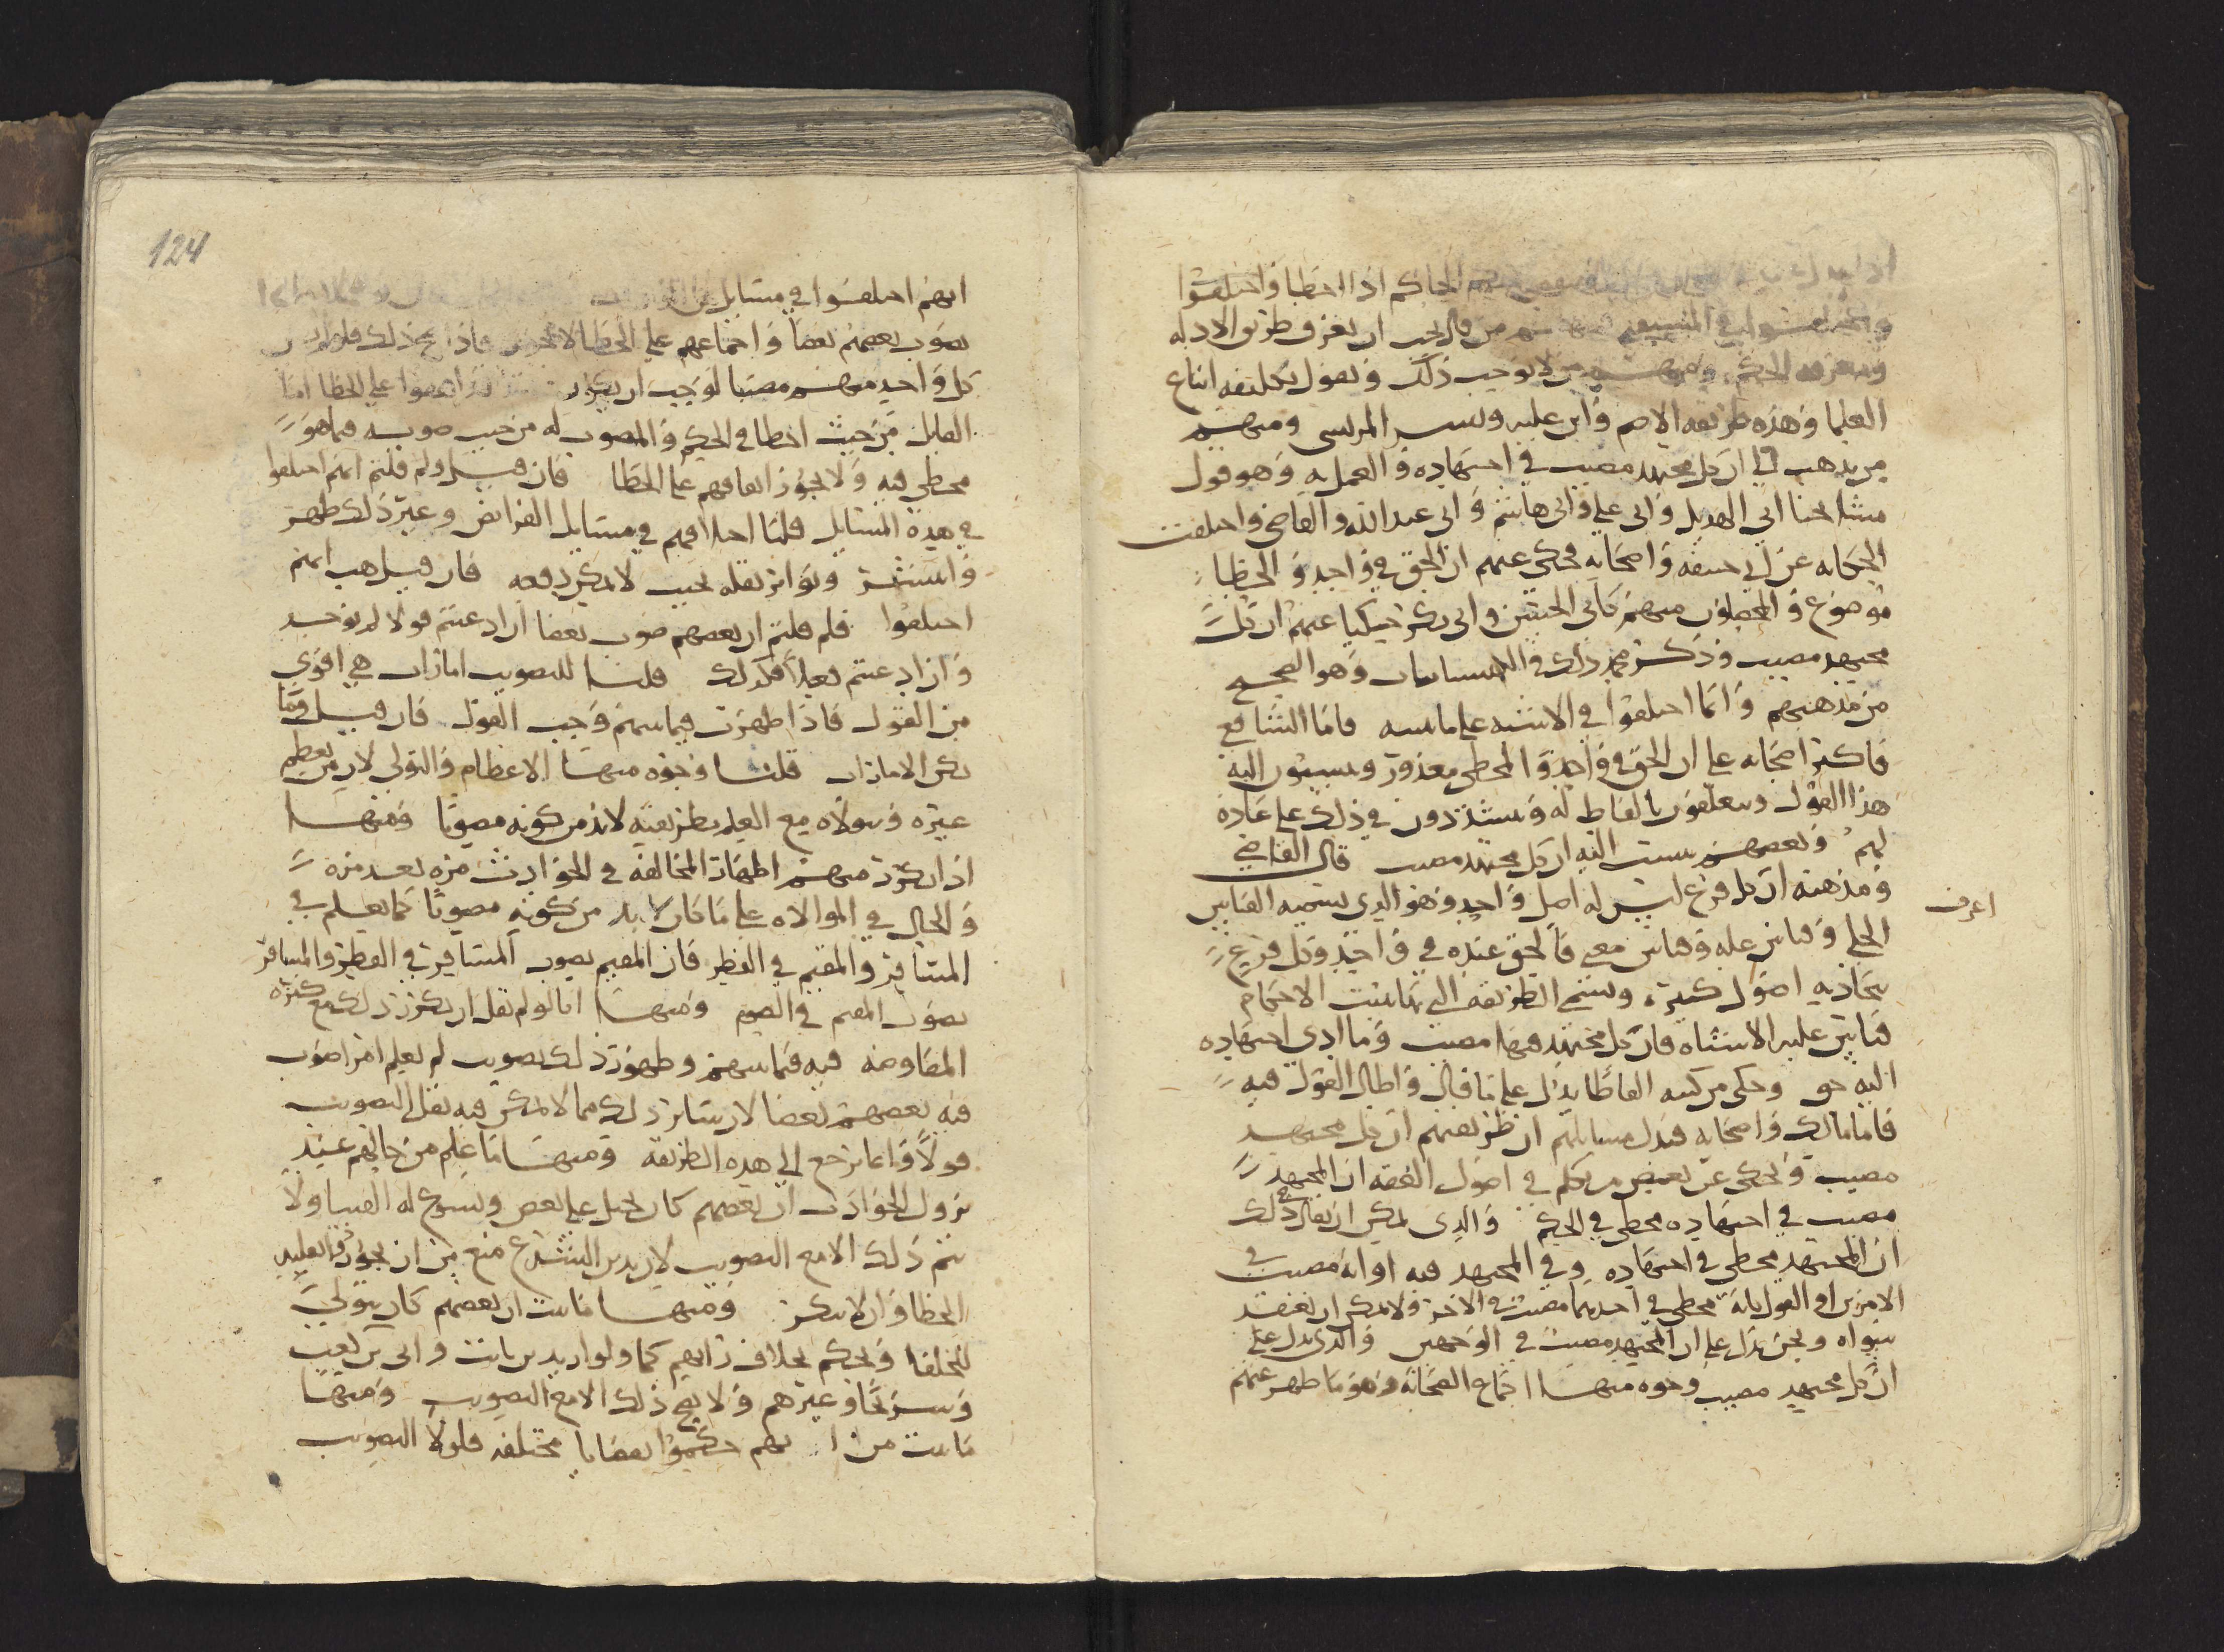 الحاكم اذا اخطا واختلفوا
من قال يجب ان يعرف طرق الادله
ومنهم من لا يوجب ذلك ويقول تكليفه اتباع
العلما وهذه طريقه الاصم وابن عليه وبشر المريسي ومنهم
من يذهب الى ان كل مجتهد مصيب في اجتهاده والعمل به وهو قول
مشايخنا ابي الهذيل وابي علي وابي هاشم وابي عبد الله والقاضي واختلفت
الحكايه عن ابي حنيفه واصحابه فحكي عنهم ان الحق في واحد والخطا
موضوع والمحصلون منهم كابي الحسن وابي بكر حكيا عنهم ان كل
مجتهد مصيب وذكر محمد ذلك في وهو الصحيح
من مذهبهم وانما اختلفوا في الاشبه على ما نبينه فاما الشافعي
فاكثر اصحابه على ان الحق في واحد والمخطي معذور وينسبون اليه
هذا القول ويتعلقون بالفاظ له ويشددون في ذلك على عادة
لهم وبعضهم ينسب اليه ان كل مجتهد مصيب قال القاضي
ومذهبه ان كل فرع ليس له اصل واحد وهو الذي يسميه القياس
اعرف
الجلي وقياس عله وقياس معنى فالحق عنده في واحد وكل فرع
يتجاذبه اصول كثيرة ويسمي الطريقه التي بها يثبت الاحكام
قياس غلبه الاشتباه فان كل مجتهد فيها مصيب وما ادى اجتهاده
اليه حق وحكى من كتبه الفاظا يدل على ما قال واطال القول فيه
فاما مالك واصحابه فتدل مسايلهم ان طريقتهم ان كل مجتهد
مصيب ويحكى عن بعض من تكلم في اصول الفقه ان المجتهد
مصيب في اجتهاده مخطي في الحكم والذي يمكن ان يقال في ذلك
ان المجتهد مخطي في اجتهاده وفي المجتهد فيه او انه مصيب في
الامرين او القول بانه مخطي في احدهما مصيب في الاخر ولا يمكن ان يعتقد
سواه ونحن ندل على ان المجتهد مصيب في الوجهين والذي يدل على
ان كل مجتهد مصيب وجوه منها اجماع الصحابه وهو ما ظهر عنهم
124
انهم اختلفوا في مسايل
يصوب بعضهم بعضا واجماعهم على الخطا لا يجوز فاذا صح ذلك
كل واحد منهم مصيبا لوجب ان يكون على الخطا اما
القايل من حيث اخطا في الحكم والمصوب له من حيث صوبه فيما هو
مخطي فيه ولا يجوز اتفاقهم على الخطا فان قيل ولم قلتم انهم اختلفوا
في هذه المسايل قلنا اختلافهم في مسايل الفرايض وغير ذلك ظهر
وانتشر وتواتر نقله بحيث لا يمكن دفعه فان قيل هب انهم
اختلفوا فلم قلتم ان بعضهم صوب بعضا ان ادعيتم قولا لم يوجد
وان ادعيتم فعلا فكذلك قلنا للتصويب امارات هي اقوى
من القول فاذا ظهرت فيما بينهم وجب القول فان قيل وما
تلك الامارات قلنا وجوه منها الاعظام والتولي لان من يعظم
غيره ويتولاه مع العلم بطريقته لا بد من كونه مصوبا ومنها
اذا تكررت منهم اظهار المخالفه في الحوادث مرة بعد مرة
والحال في الموالاه على ما كان لا بد من كونه مصوبا كما يعلم في
المسافر والمقيم في الفطر فان المقيم يصوب المسافر في الفطر والمسافر
يصوب المقيم في الصوم ومنها انا لو لم نقل ان تكرر ذلك مع كثرة
المفاوضه فيه فيما بينهم وظهور ذلك تصويب لم يعلم امر اصوب
فيه بعضهم بعضا لان ساير ذلك مما لا يمكن فيه نقل التصويب
قولا وانما يرجع الى هذه الطريقه ومنها ما علم من حالهم عند
نزول الحوادث ان بعضهم كان يحيل على بعض ويسوغ له الفتيا ولا
يتم ذلك الا مع التصويب لان تدين التشرع منع من ان يجوز التقليد
الخطا وان لا ينكر ومنها ما ثبت ان بعضهم كان يتولى
للخلفا ويحكم بخلاف رايهم كما ولوا زيد بن ثابت وابي بن كعب
وشريحا وغيرهم ولا يصح ذلك الا مع التصويب ومنها
ما ثبت من انهم حكموا بقضايا مختلفه فلولا التصويب